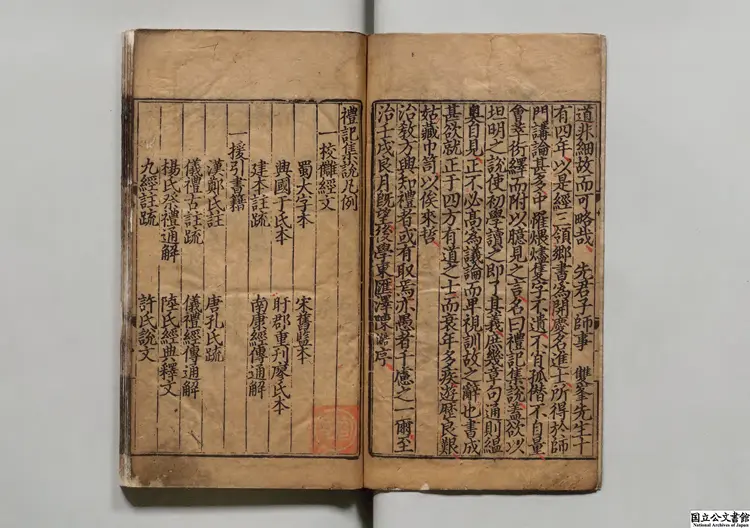 道非細故而可略哉　先君子師事　雙峯先生十
有四年以是經三領鄉書為開慶名進士所得於師
門講論甚多中罹煨燼隻字不遺不肖孤僭不自量
會萃衍繹而附以臆見之言名曰禮記集說蓋欲以
坦明之說使初學讀之即了其義庶幾章句通則緼
奧自見正不必高為議論而卑視訓故之辭也書成
甚欲就正于四方有道之士而衰年多疾遊歷良艱
姑藏巾笥以俟來哲
治教方興知禮者或有取焉亦愚者千慮之一爾至
治壬戌良月既望後學東匯澤陳澔序
禮記集說凡例
一校讎經文
蜀大字本　宋舊監本
興國于氏本　盱郡重刊廖氏本
建本註疏　南康經傳通解
一援引書籍
漢鄭氏註　唐孔氏疏
儀禮古註疏　儀禮經傳通解
楊氏祭禮通解　陸氏經典釋文
九經註疏　許氏說文
国立公文書館
National Archives of Japan